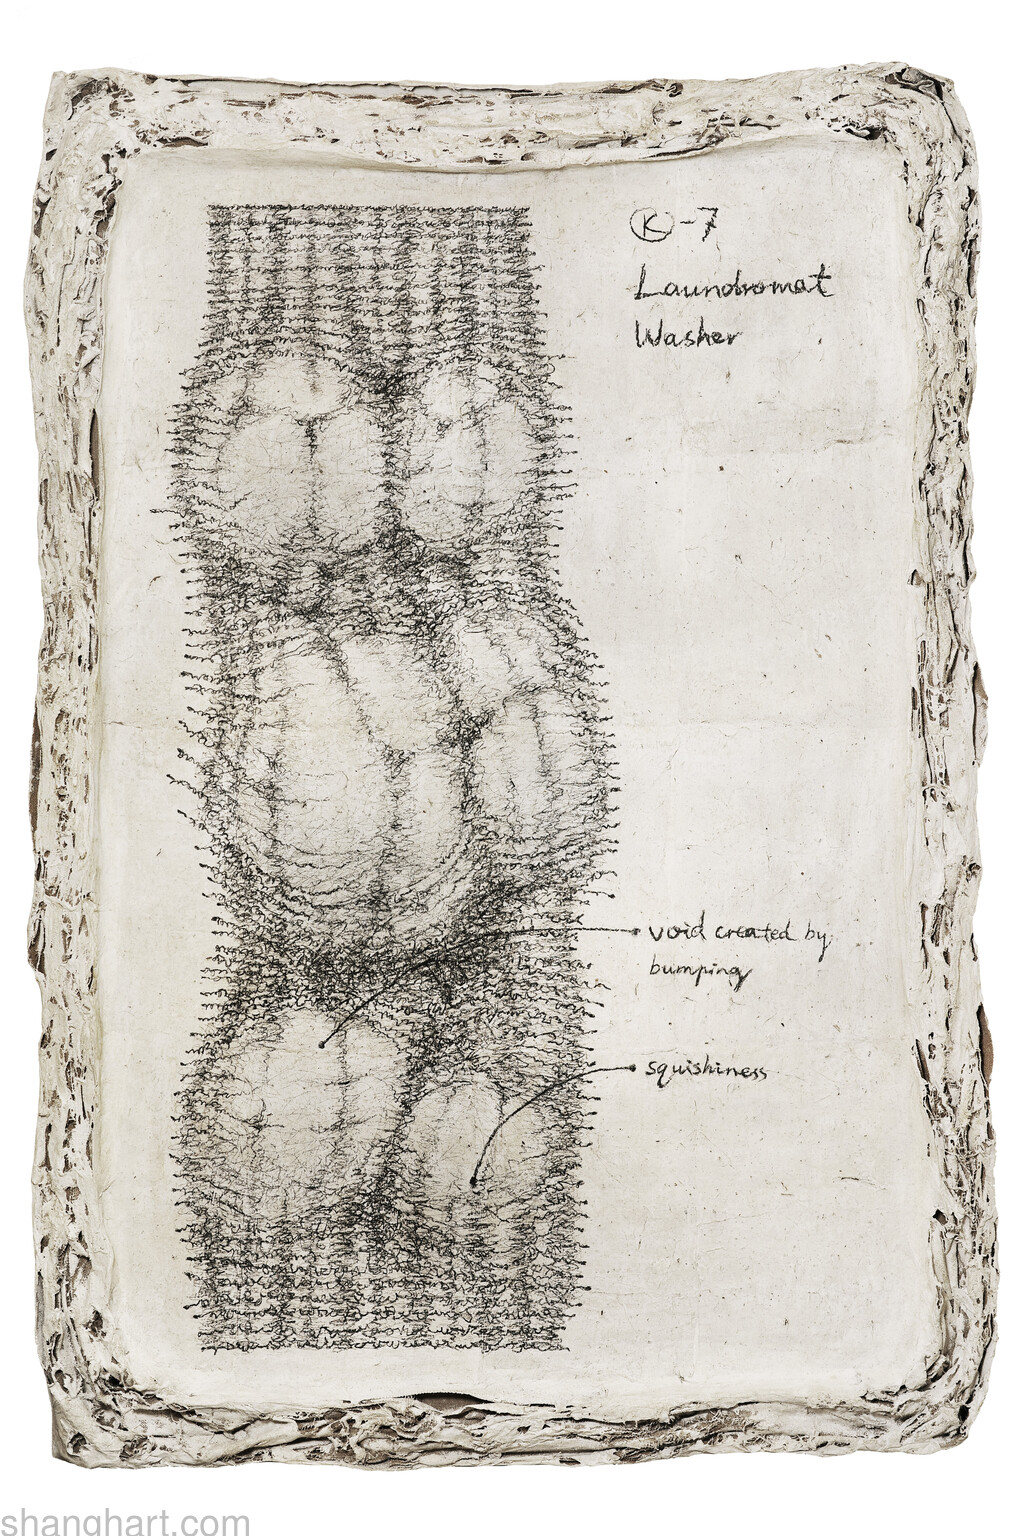 Ⓚ-7
Laundromat
Washer
void created by
bumping
squishiness
shanghart.com